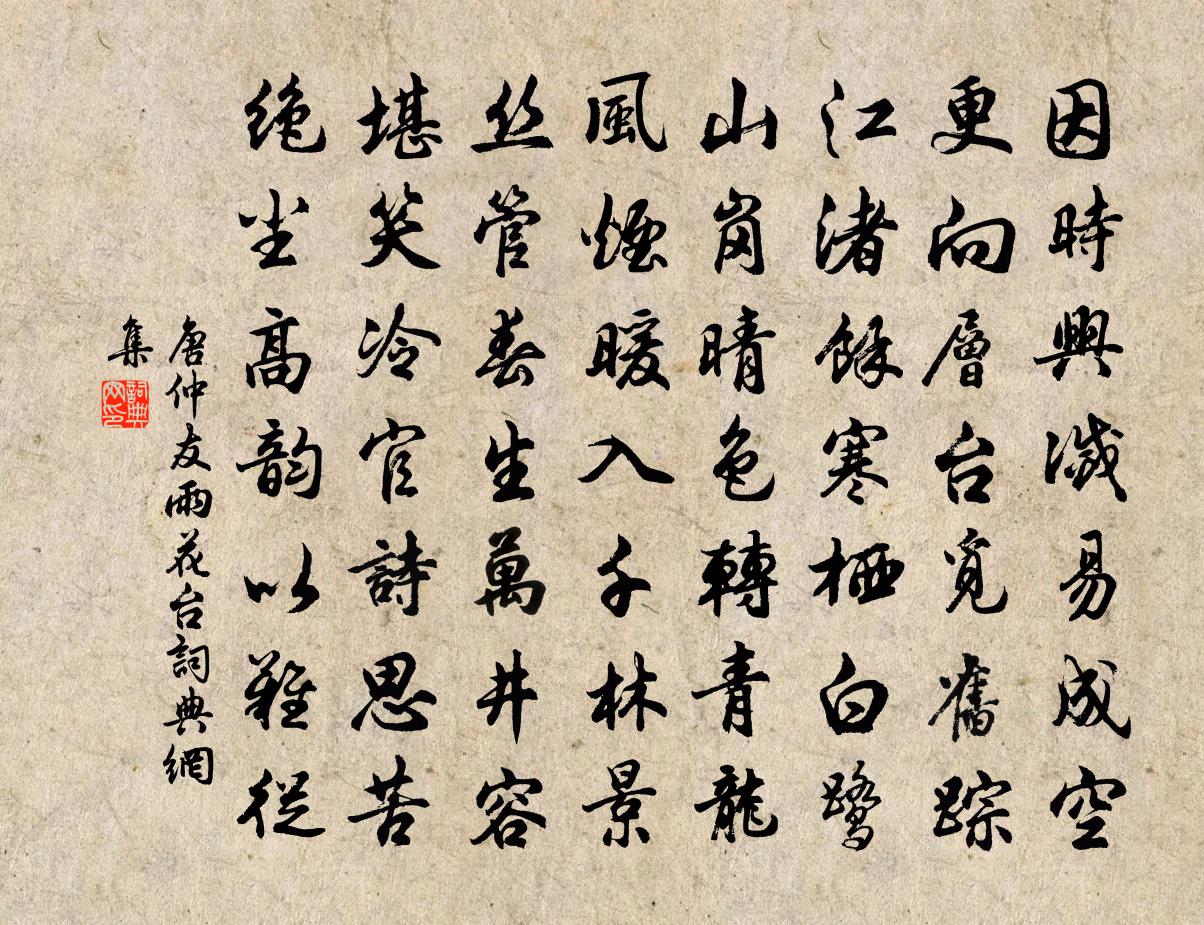 因時興滅易成空
更向層台覓舊踪
江渚餘寒栖白鷺
山岗晴色轉青龍
風煙暖入千林景
丝管春生萬井容
堪笑冷官詩思苦
绝尘高韵以難從
唐仲友雨花台詞典網
集
詞典
网印